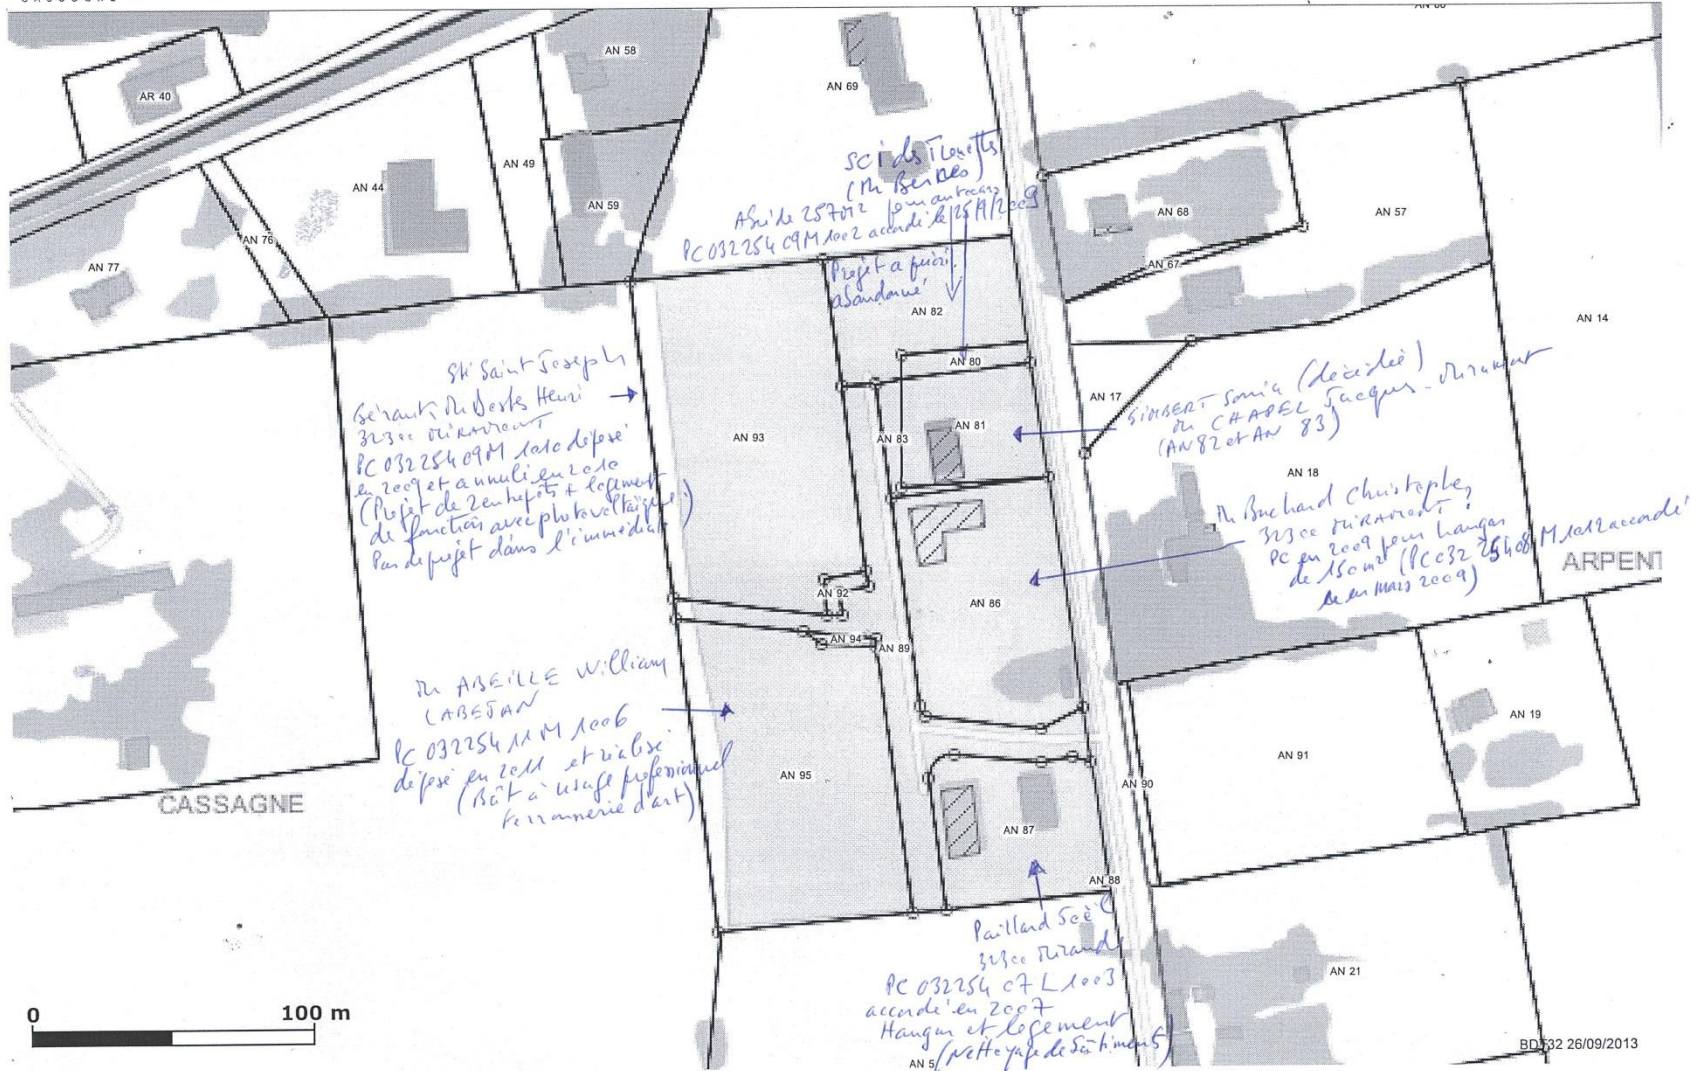 AR 40
AN 58
AN 69
AN 49
AN 44
AN 59
AN 76
AN 77
SCI des
(Mr Berdes)
Abri de 257m2 pour autocars
PC 032254 09M 1002 accordé le 25/9/2009
Projet a priori
abandonné
AN 82
AN 80
AN 68
AN 57
AN 67
AN 14
AN 17
Sté Saint Joseph
Gérant, Mr Destes Henri
32300 MIRAMONT
PC 032254 09M 1010 déposé
en 2009 et annulé en 2010
(Projet de 2 entrepôts + logement
de fonction avec photovoltaïque)
Pas de projet dans l'immédiat
AN 93
AN 83
AN 81
GIMBERT Sonia (décédée)
Mr CHAPEL Jacques - Miramont
(AN 82 et AN 83)
AN 18
Mr Buchard Christophe,
32300 MIRAMONT,
PC en 2009 pour hangar
de 150 m2 (PC 032 254 08 M 1012 accordé
en mars 2009)
ARPENT
AN 92
AN 86
AN 94
AN 89
Mr ABEILLE William
LABEJAN
PC 032254 11 M 1006
déposé en 2011 et réalisé
(Bât à usage professionnel
ferronnerie d'art)
CASSAGNE
AN 95
AN 19
AN 91
AN 90
AN 87
AN 88
Paillard Joël
32300 Mirande
PC 032254 07 L 1003
accordé en 2007
Hangar et logement
(Nettoyage de bâtiments)
AN 21
AN 5
0 100 m
26/09/2013